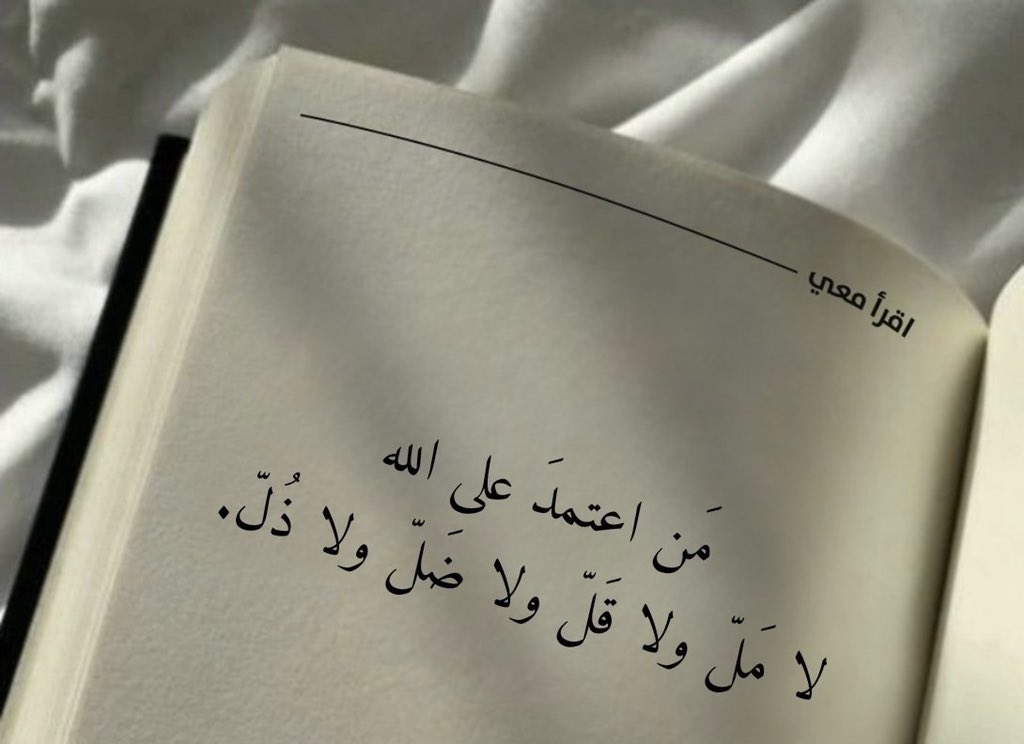 اقرأ معي
مَن اعتمدَ على الله
لا مَلّ ولا قَلّ ولا ضَلّ ولا ذُلّ.